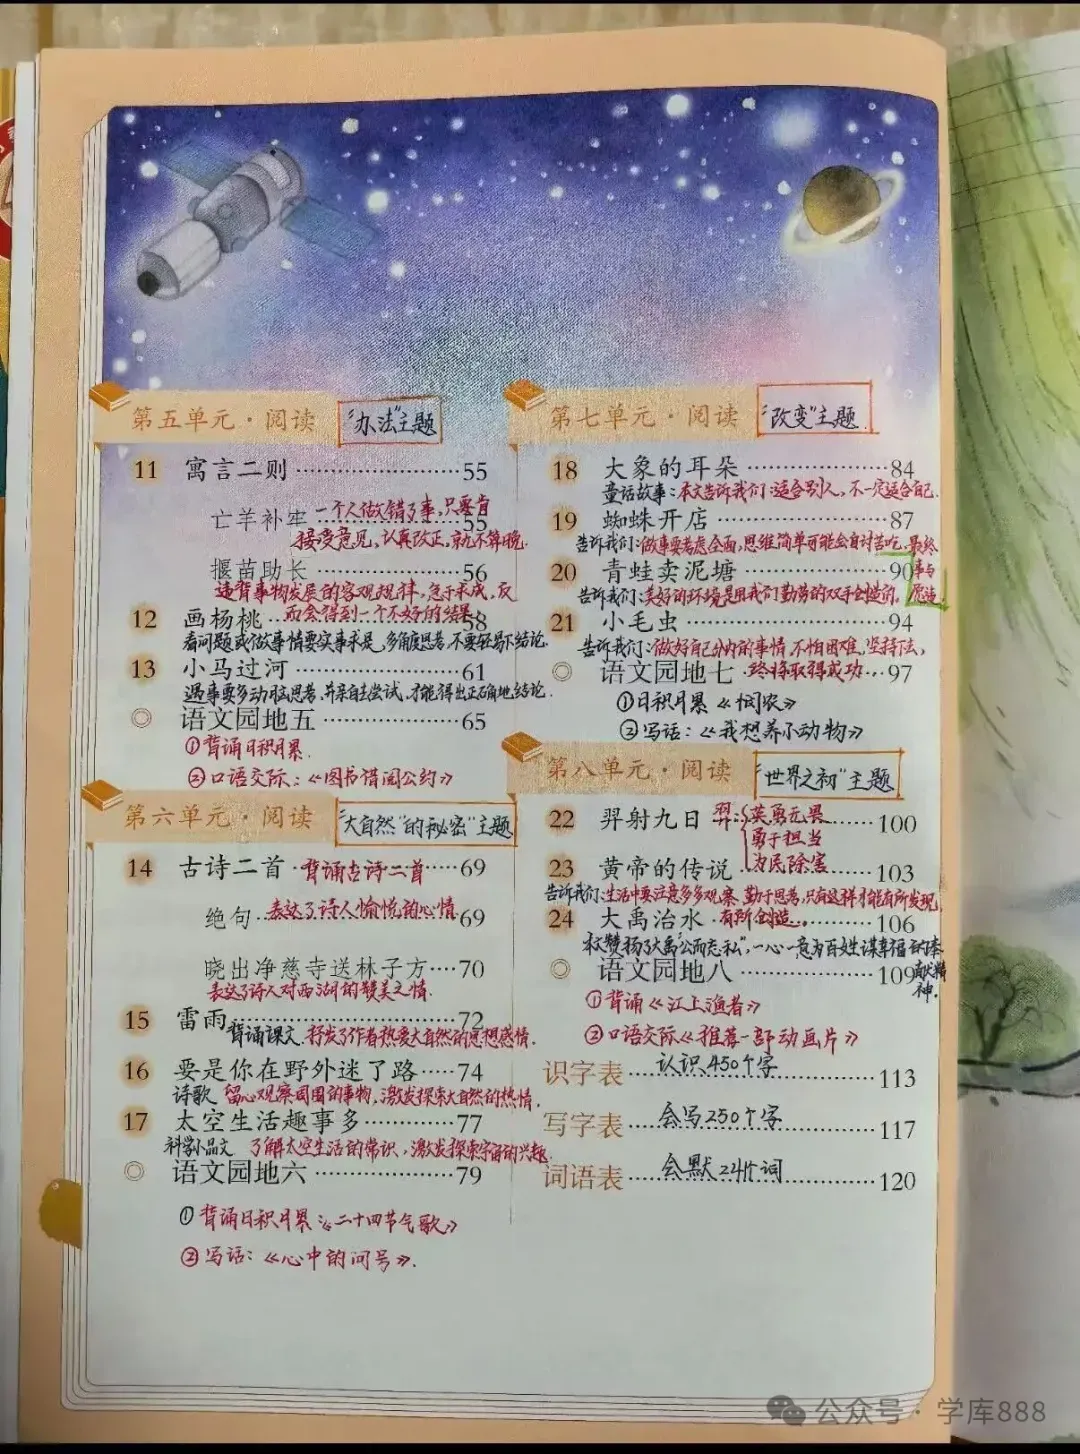 第五单元·阅读 "办法"主题
11 寓言二则 55
亡羊补牢 55
一个人做错了事,只要肯
接受意见,认真改正,就不算晚.
揠苗助长 56
违背事物发展的客观规律,急于求成,反
而会得到一个不好的结果
12 画杨桃 58
看问题或做事情要实事求是,多角度思考,不要轻易下结论.
13 小马过河 61
遇事要多动脑思考,并亲自去尝试,才能得出正确地结论.
◎ 语文园地五 65
①背诵日积月累.
②口语交际:《图书借阅公约》
第六单元·阅读 "大自然"的秘密"主题
14 古诗二首·背诵古诗二首 69
绝句 表达了诗人愉悦的心情 69
晓出净慈寺送林子方 70
表达了诗人对西湖的赞美之情.
15 雷雨 72
背诵课文.抒发了作者热爱大自然的思想感情.
16 要是你在野外迷了路 74
诗歌 留心观察周围的事物,激发探索大自然的热情.
17 太空生活趣事多 77
科学小品文 了解太空生活的常识,激发探索宇宙的兴趣.
◎ 语文园地六 79
①背诵日积月累:《二十四节气歌》
②写话:《心中的问号》.
第七单元·阅读 "改变"主题
18 大象的耳朵 84
童话故事:本文告诉我们:适合别人,不一定适合自己.
19 蜘蛛开店 87
告诉我们:做事要考虑全面,思维简单可能会自讨苦吃,最终
事与
愿违.
20 青蛙卖泥塘 90
告诉我们:美好的环境是用我们勤劳的双手创造的.
21 小毛虫 94
告诉我们:做好自己分内的事情,不怕困难,坚持下去,
终将取得成功
◎ 语文园地七 97
①日积月累《悯农》
②写话:《我想养小动物》
第八单元·阅读 "世界之初"主题
22 羿射九日 100
羿:英勇无畏
勇于担当
为民除害
23 黄帝的传说 103
告诉我们:生活中要注意多多观察,勤于思考,只有这样才能有所发现,
有所创造.
24 大禹治水 106
赞扬了大禹"公而忘私",一心一意为百姓谋幸福的奉
献精
神.
◎ 语文园地八 109
①背诵《江上渔者》
②口语交际《推荐一部动画片》
识字表 认识450个字 113
写字表 会写250个字 117
词语表 120
公众号·学库888